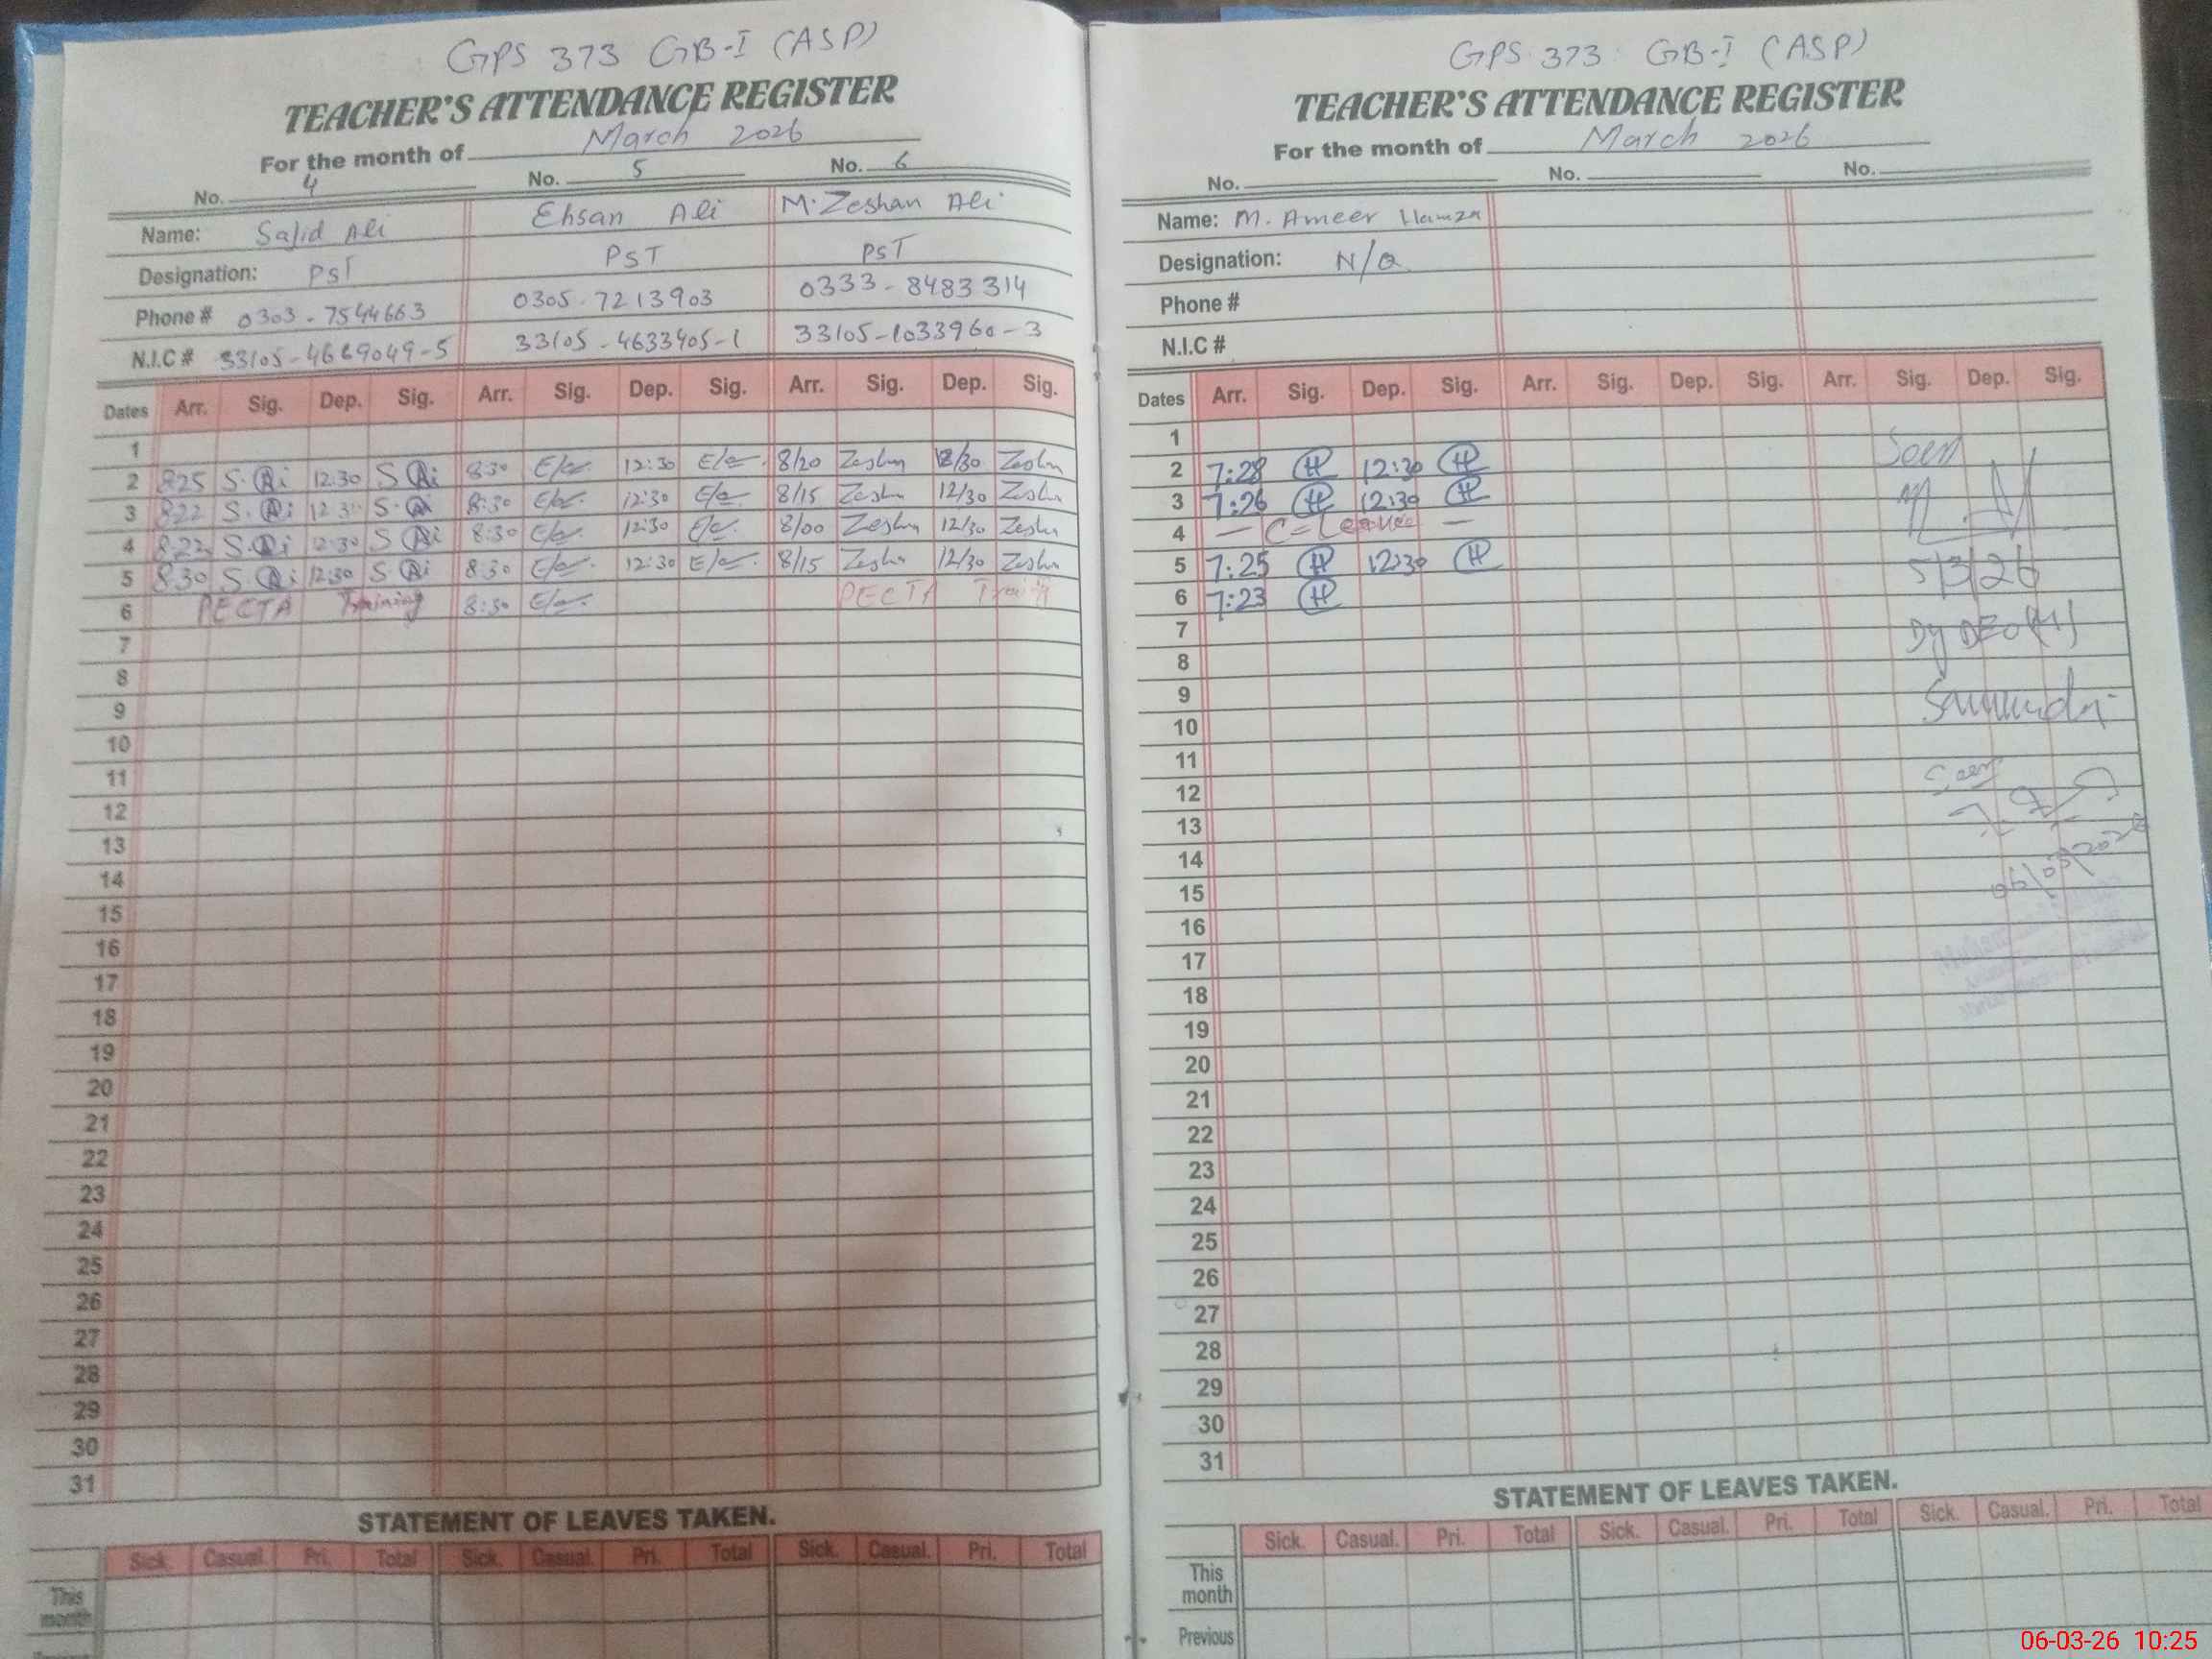 GPS 373 GB-I (ASP)
TEACHER'S ATTENDANCE REGISTER
For the month of March 2026
No. 4 No. 5 No. 6
Name: Sajid Ali Ehsan Ali M. Zeshan Ali
Designation: PST PST PST
Phone # 0303-7544663 0305-7213903 0333-8483314
N.I.C # 33105-4689049-5 33105-4633405-1 33105-1033960-3
Dates Arr. Sig. Dep. Sig. Arr. Sig. Dep. Sig. Arr. Sig. Dep. Sig.
1
2 825 S.Ali 12:30 S Ali 8:30 12:30 8/20 Zeshn 12/30 Zeshn
3 822 S.Ali 12:30 S.Ali 8:30 12:30 8/15 Zeshn 12/30 Zeshn
4 8:22 S.Ali 12:30 S Ali 8:30 12:30 8/00 Zeshn 12/30 Zeshn
5 830 S.Ali 12:30 S Ali 8:30 12:30 8/15 Zeshn 12/30 Zeshn
6 PECTA Training 8:30 PECTA Training
7
8
9
10
11
12
13
14
15
16
17
18
19
20
21
22
23
24
25
26
27
28
29
30
31
STATEMENT OF LEAVES TAKEN.
Sick. Casual. Pri. Total Sick. Casual. Pri. Total Sick. Casual. Pri. Total
This
month
GPS 373 GB-I (ASP)
TEACHER'S ATTENDANCE REGISTER
For the month of March 2026
No. No. No.
Name: M. Ameer Hamza
Designation: N/Q
Phone #
N.I.C #
Dates Arr. Sig. Dep. Sig. Arr. Sig. Dep. Sig. Arr. Sig. Dep. Sig.
1
2 7:28 H 12:30 H Seen
3 7:26 H 12:30 H
4 — C = Leave —
5 7:25 H 12:30 H 5/3/26
6 7:23 H
7 Dy DEO (M)
8
9
10
11
12 Seen
13
14 06/03/2026
15
16
17
18
19
20
21
22
23
24
25
26
27
28
29
30
31
STATEMENT OF LEAVES TAKEN.
Sick. Casual. Pri. Total Sick. Casual. Pri. Total Sick. Casual. Pri. Total
This
month
Previous
06-03-26 10:25